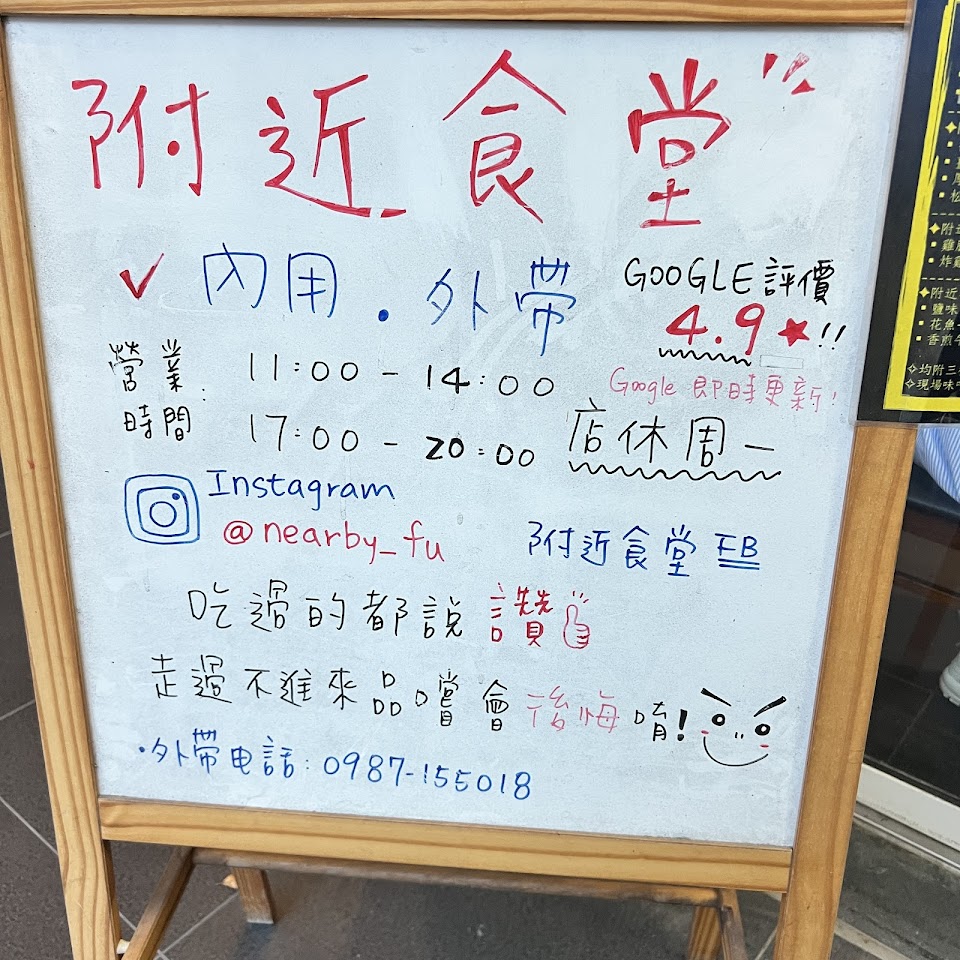 附近食堂
✓ 內用.外帶
GOOGLE評價
4.9★!!
Google 即時更新!
營業時間: 11:00 - 14:00
17:00 - 20:00
店休周一
Instagram
@nearby_fu
附近食堂 FB
吃過的都說讚
走過不進來品嚐會後悔唷!
·外帶电話:0987-155018